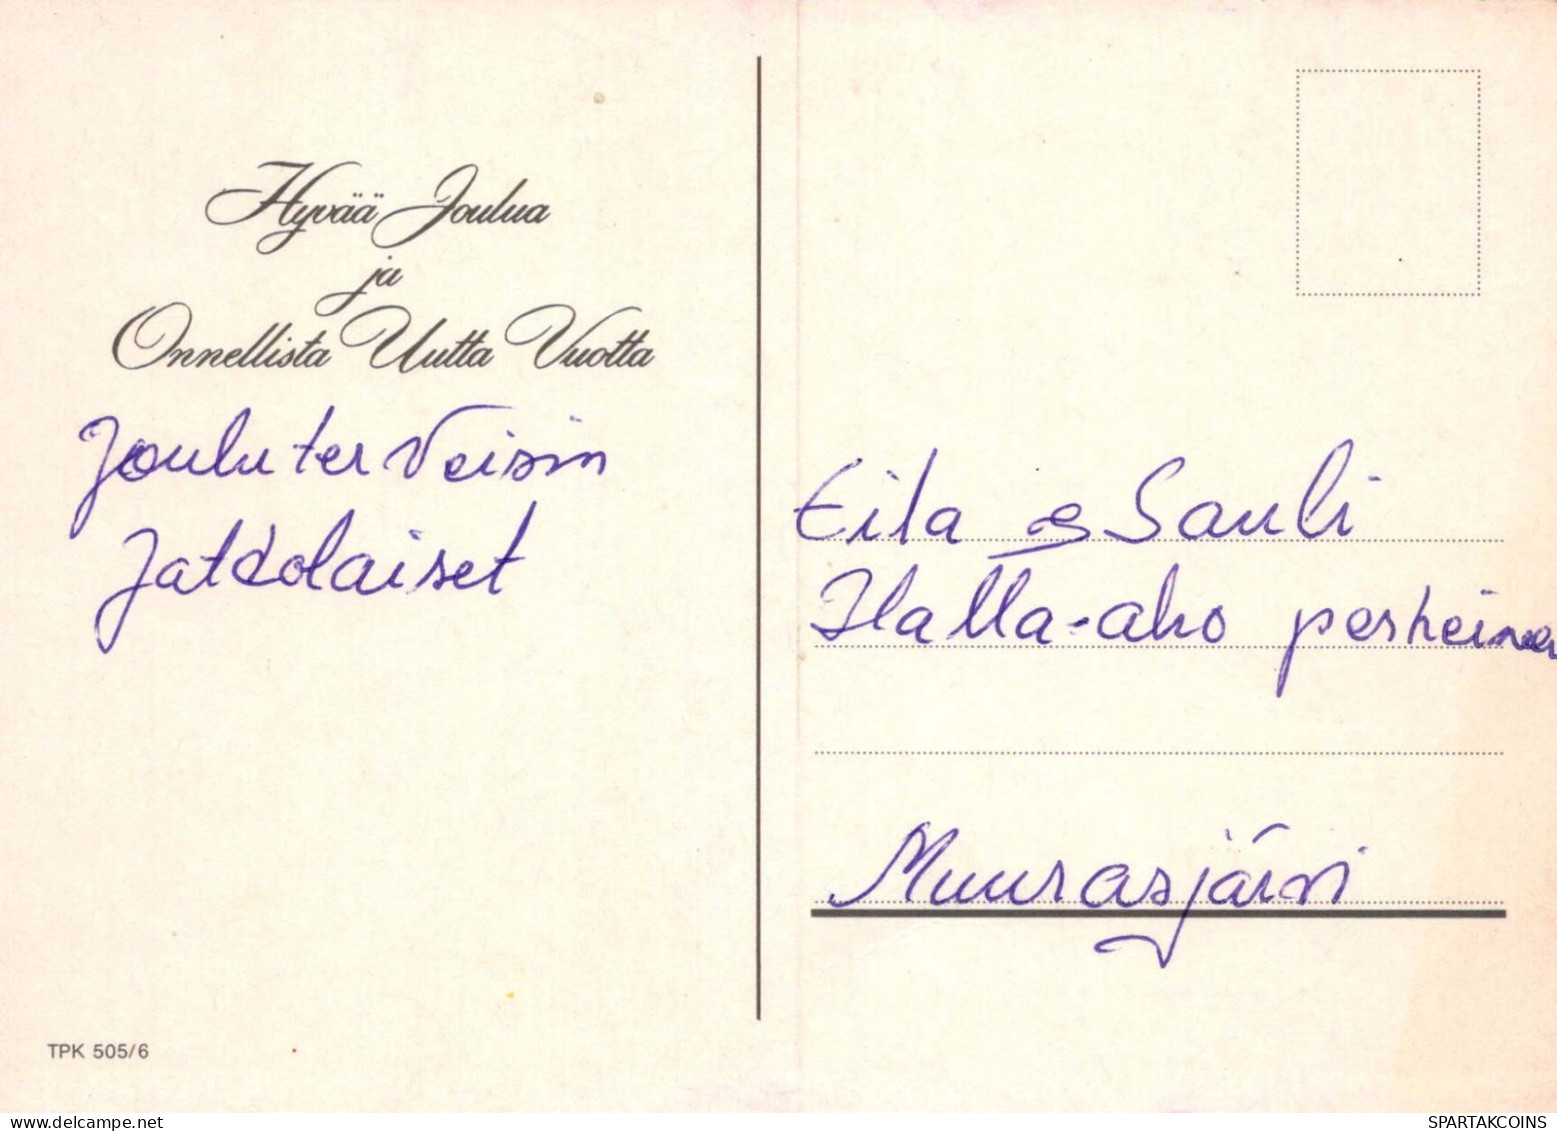 Hyvää Joulua
ja
Onnellista Uutta Vuotta
Jouluterveisin
Jatkolaiset
Eila & Sauli
Halla-aho perheineen
Muurasjärvi
TPK 505/6
delcampe.net
SPARTAKCOINS